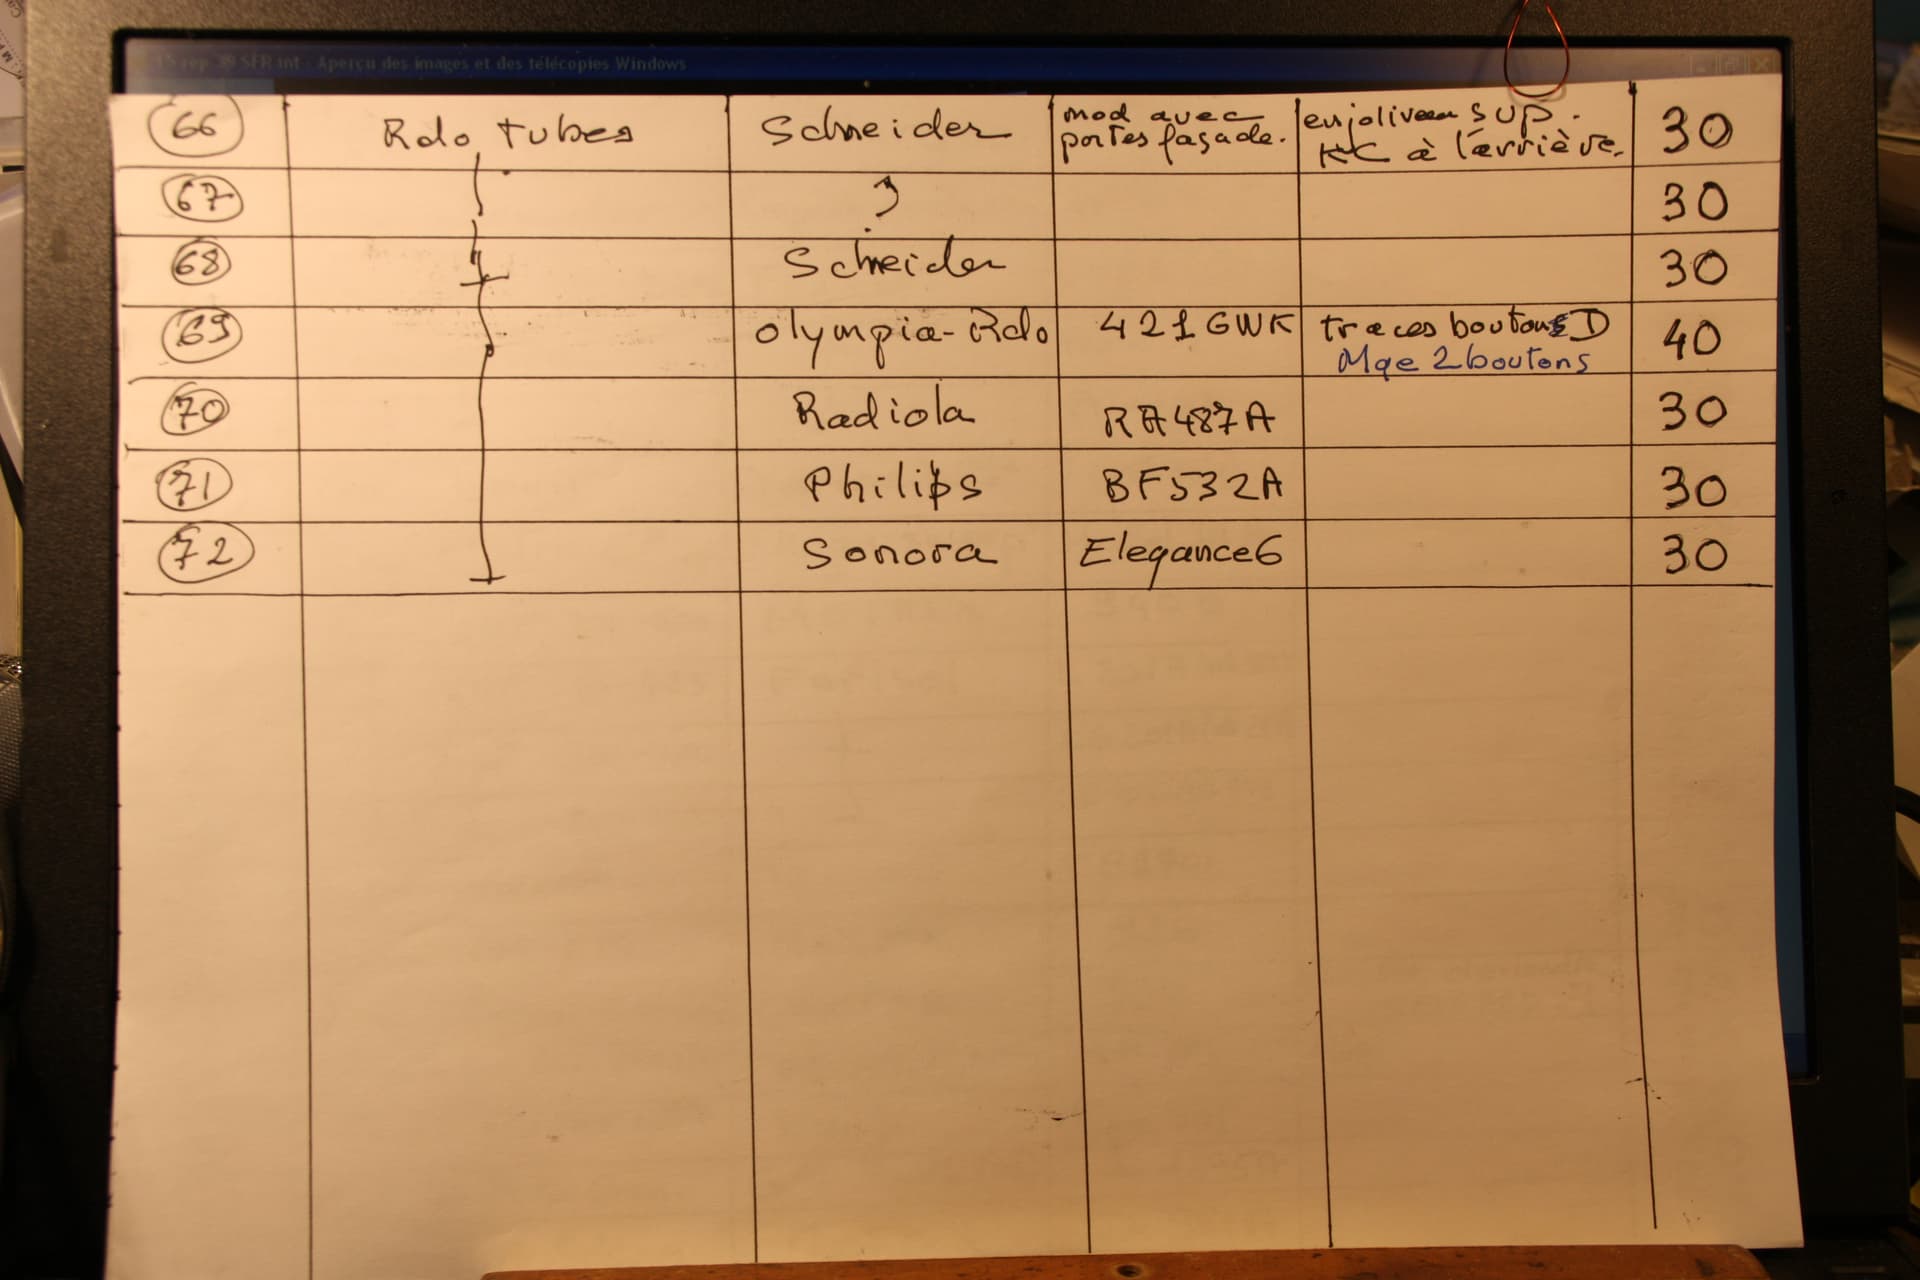 15 rep 39 SFR int - Aperçu des images et des télécopies Windows
66 Rdo tubes Schneider mod avec portes façade. enjoliveur sup. à l'arrière. 30
67 ? 30
68 " Schneider 30
69 Olympia-Rdo 421 GWK traces boutons D 40
Mqe 2 boutons
70 Radiola RA487A 30
71 Philips BF532A 30
72 Sonora Elegance6 30